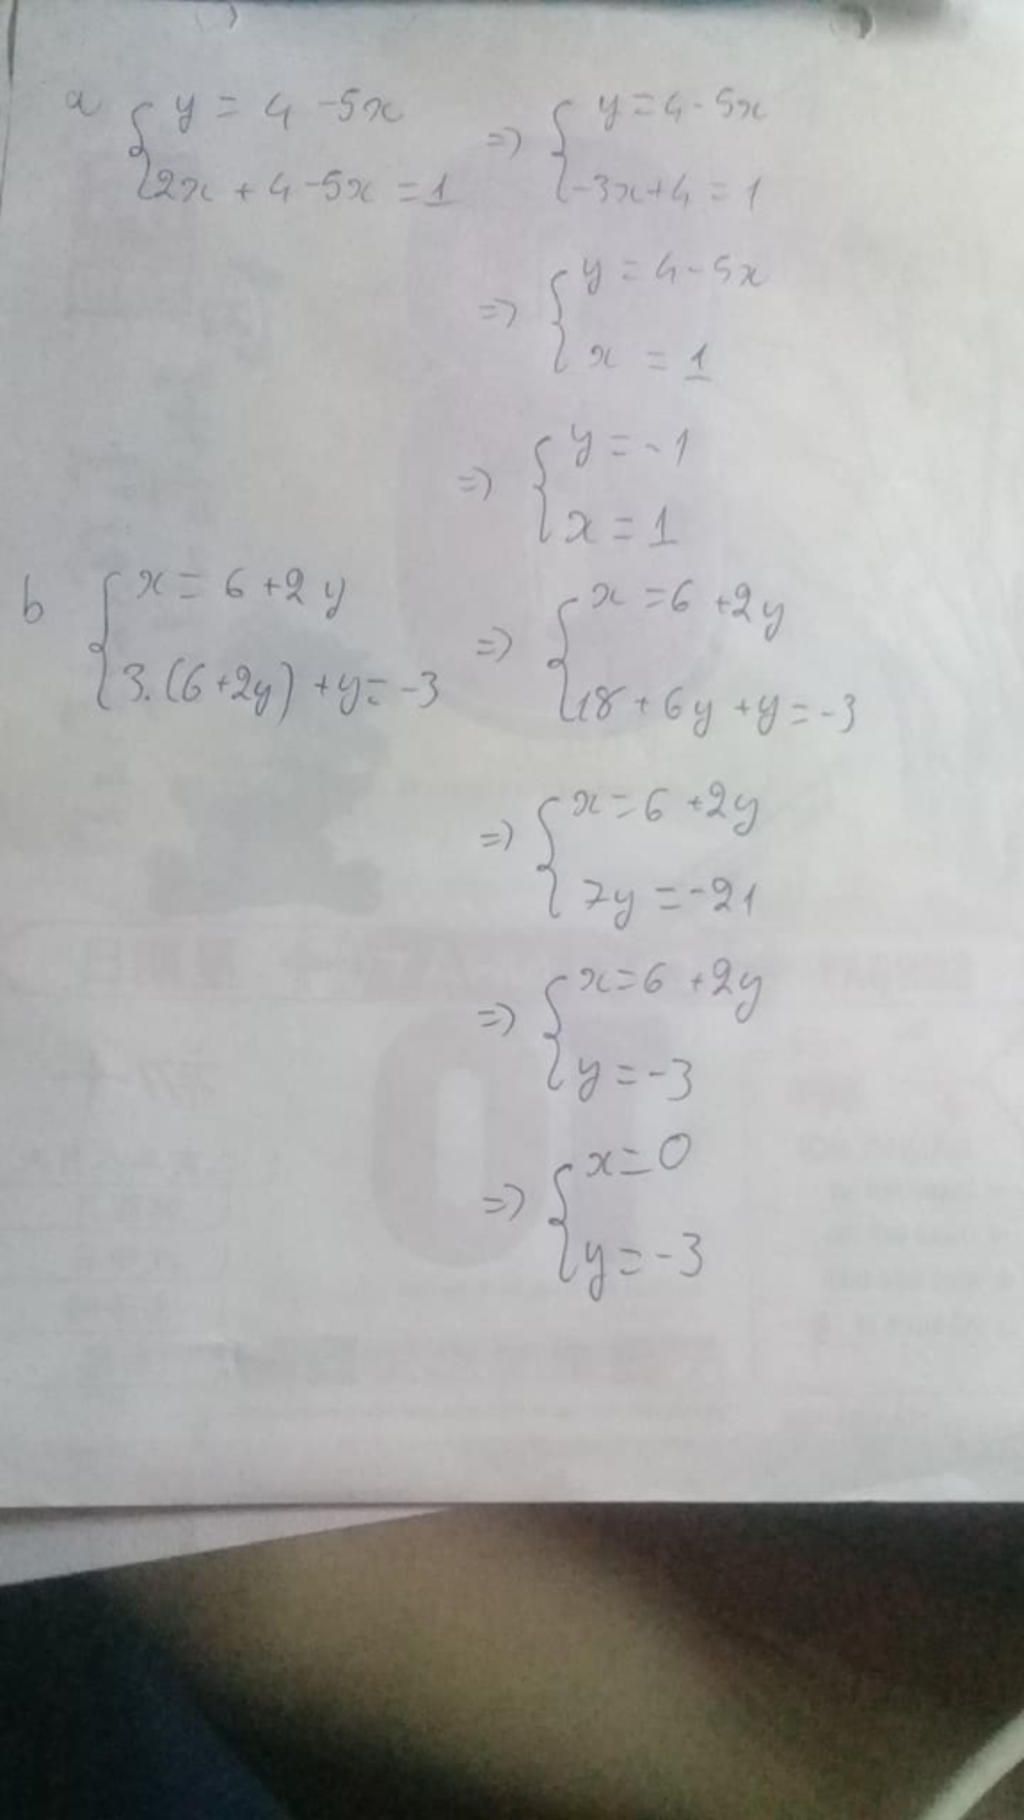 a { y = 4 - 5x => { y = 4 - 5x
2x + 4 - 5x = 1 -3x + 4 = 1
=> { y = 4 - 5x
x = 1
=> { y = -1
x = 1
b { x = 6 + 2y => { x = 6 + 2y
3.(6 + 2y) + y = -3 18 + 6y + y = -3
=> { x = 6 + 2y
7y = -21
=> { x = 6 + 2y
y = -3
=> { x = 0
y = -3